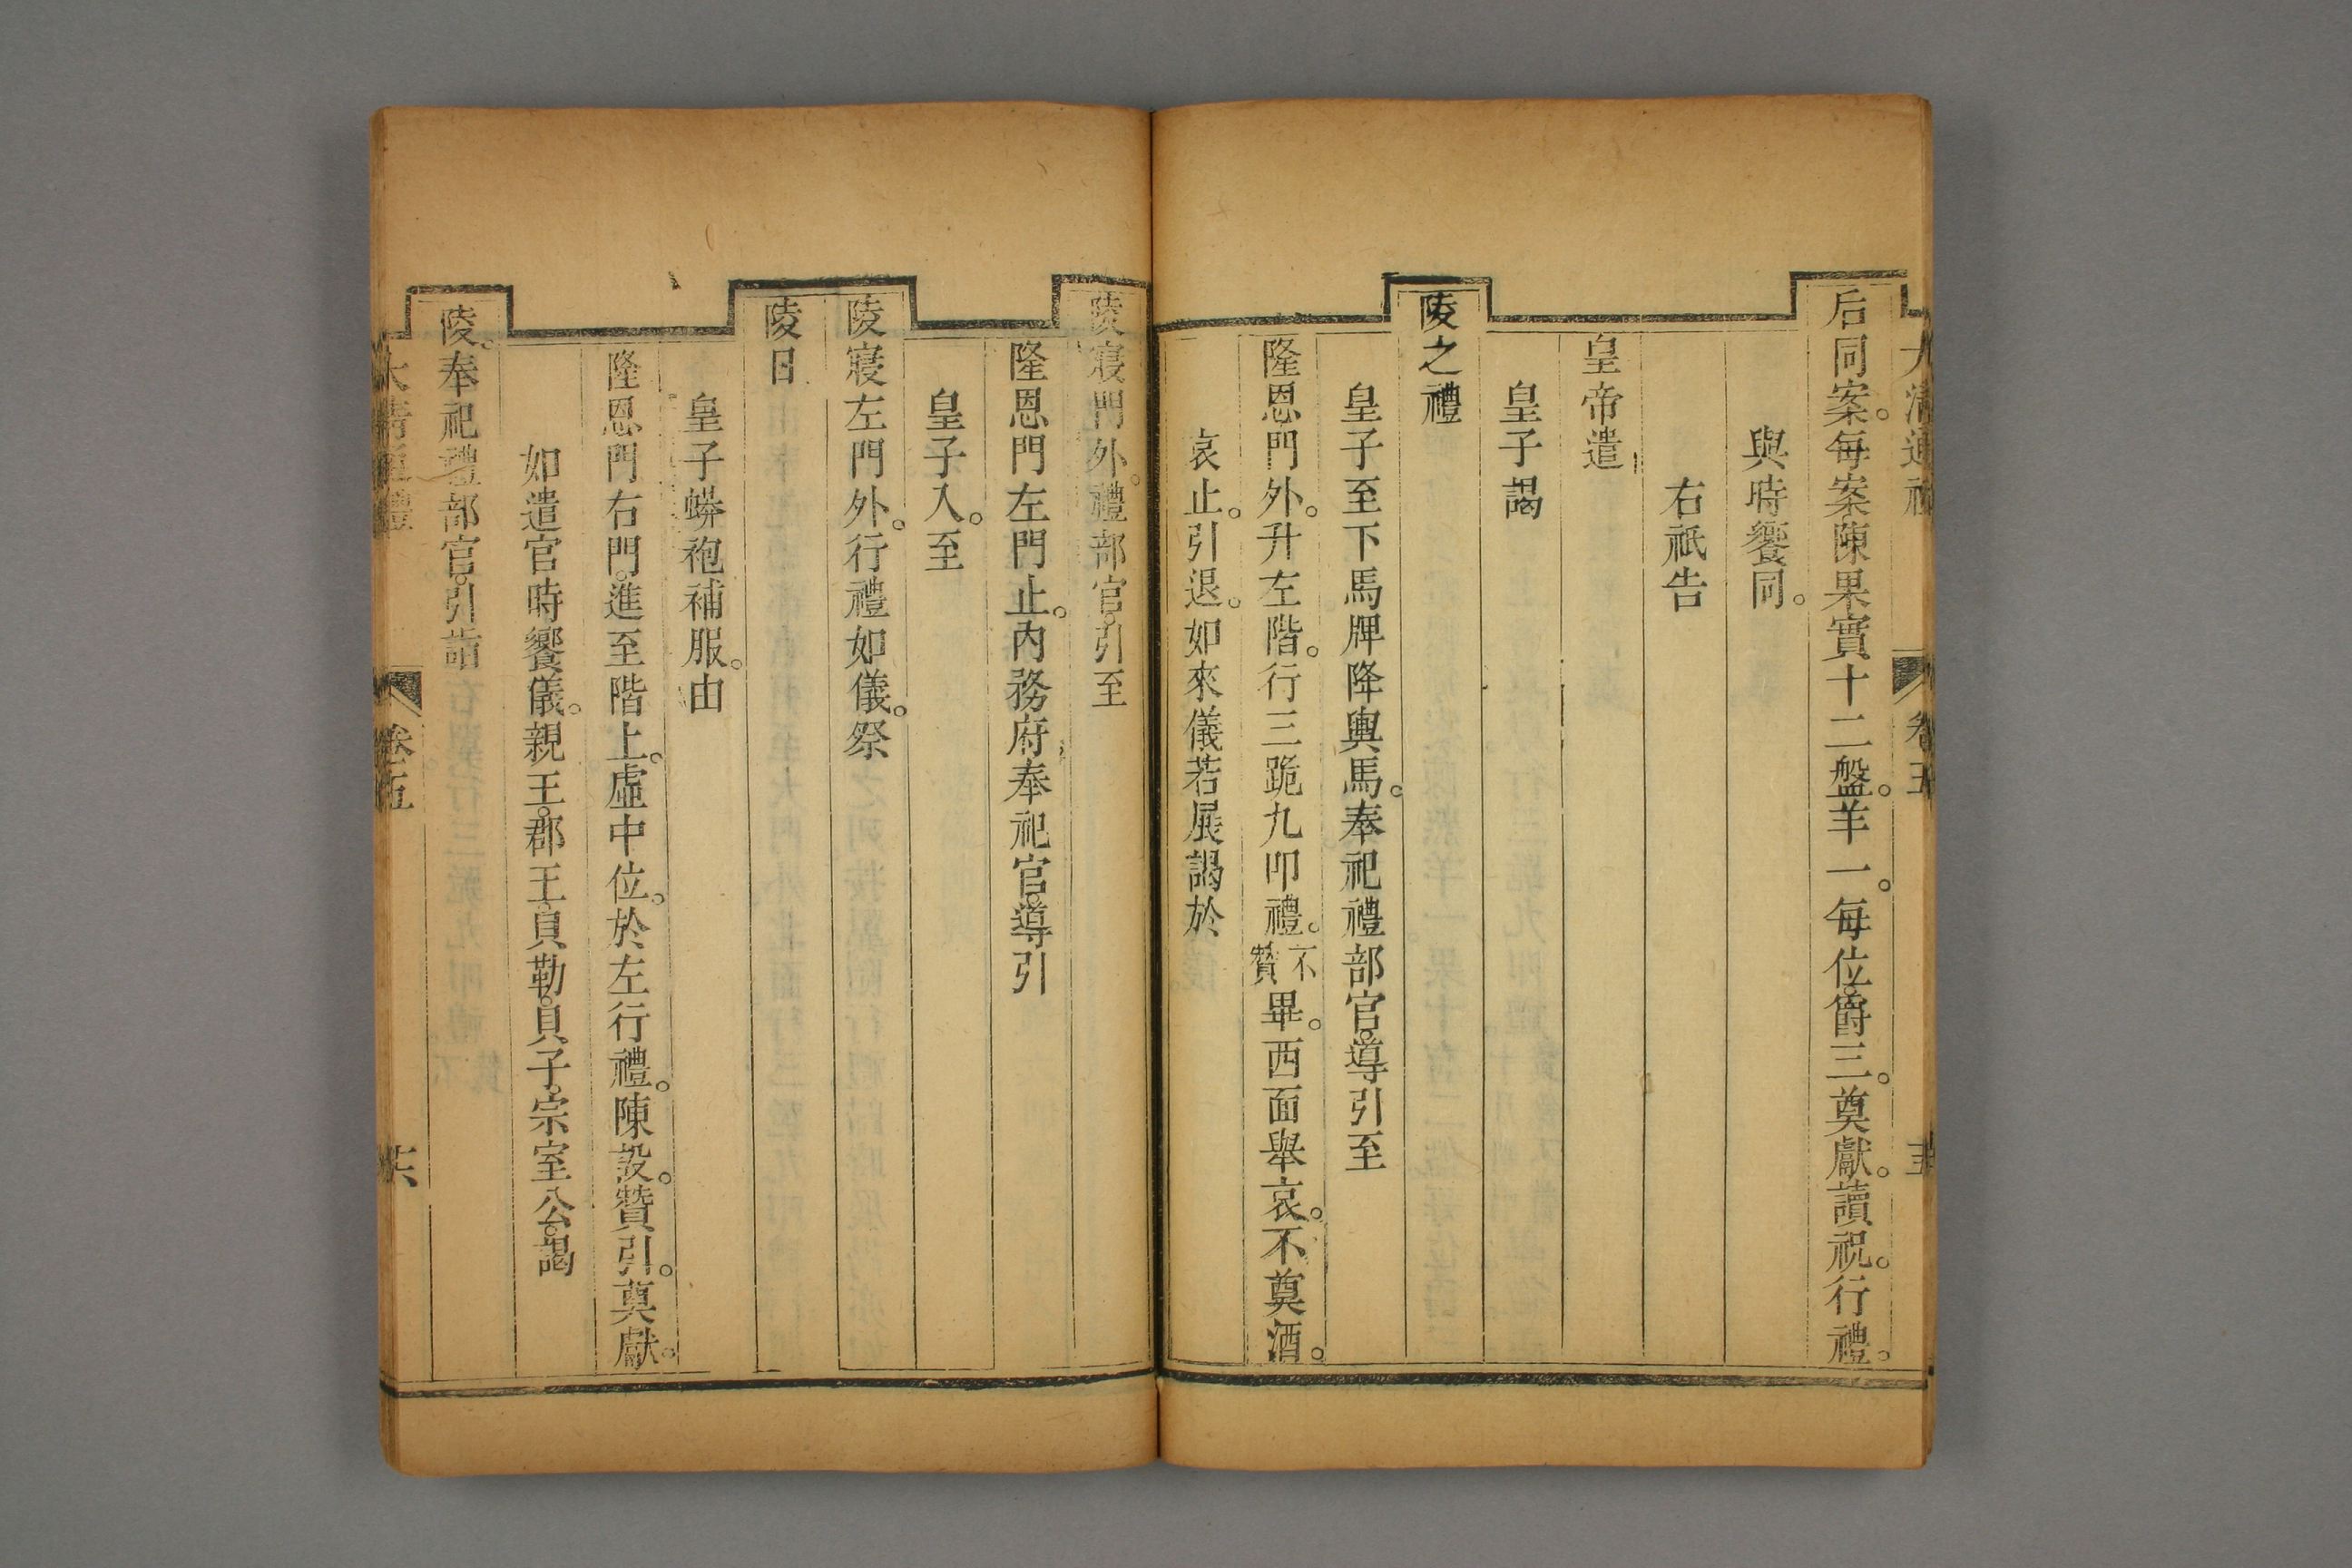 大清通禮 卷五
后同案。每案陳果實十二盤。羊一。每位。爵三。奠獻。讀祝。行禮。
與時饗同。
右祇告
皇帝遣
皇子謁
陵之禮
皇子至下馬牌降輿馬。奉祀禮部官。導引至
隆恩門外。升左階。行三跪九叩禮。不贊畢。西面舉哀。不奠酒。
哀止。引退。如來儀若展謁於
陵寢門外。禮部官。引至
隆恩門左門止。內務府奉祀官。導引
皇子入。至
陵寢左門外。行禮如儀。祭
陵日
皇子蟒袍補服。由
隆恩門右門。進至階上。虛中位。於左行禮。陳設。贊引。奠獻。
如遣官時饗儀。親王。郡王。貝勒。貝子。宗室公。謁
陵。奉祀禮部官。引詣
大清通禮 卷五